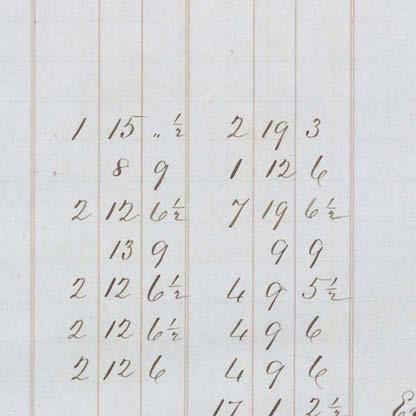 1 15 „ ½ 2 19 3
8 9 1 12 6
2 12 6½ 7 19 6½
13 9 9 9
2 12 6½ 4 9 5½
2 12 6½ 4 9 6
2 12 6 4 9 6
17 1 2½